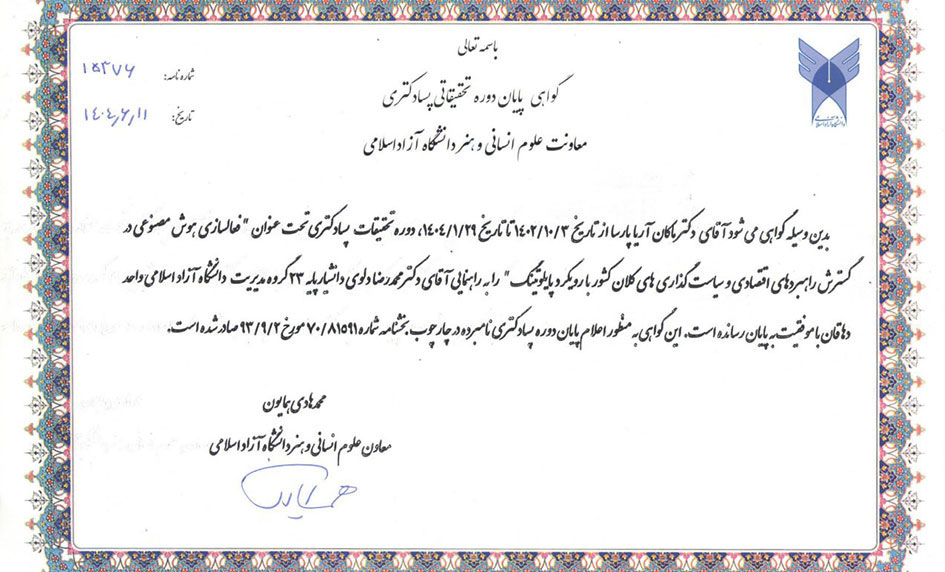 باسمه تعالی
گواهی پایان دوره تحقیقاتی پسادکتری
معاونت علوم انسانی و هنر دانشگاه آزاد اسلامی
شماره نامه: ۱۵۳۷۶
تاریخ: ۱۴۰۴٫۶٫۱۱
دانشگاه آزاد اسلامی
بدین وسیله گواهی می شود آقای دکتر ماکان آریا پارسا از تاریخ ۱۴۰۲/۱۰/۳ تا تاریخ ۱۴۰۴/۱/۲۹، دوره تحقیقات پسادکتری تحت عنوان "فعالسازی هوش مصنوعی در
گسترش راهبردهای اقتصادی و سیاست گذاری های کلان کشور با رویکرد پایلوتینگ" را به راهنمایی آقای دکتر محمدرضا دلوی دانشیار پایه ۲۳ گروه مدیریت دانشگاه آزاد اسلامی واحد
دهاقان با موفقیت به پایان رسانده است. این گواهی به منظور اعلام پایان دوره پسادکتری نامبرده در چارچوب بخشنامه شماره ۷۰/۸۱۵۹۱ مورخ ۹۳/۹/۲ صادر شده است.
محمدهادی همایون
معاون علوم انسانی و هنر دانشگاه آزاد اسلامی